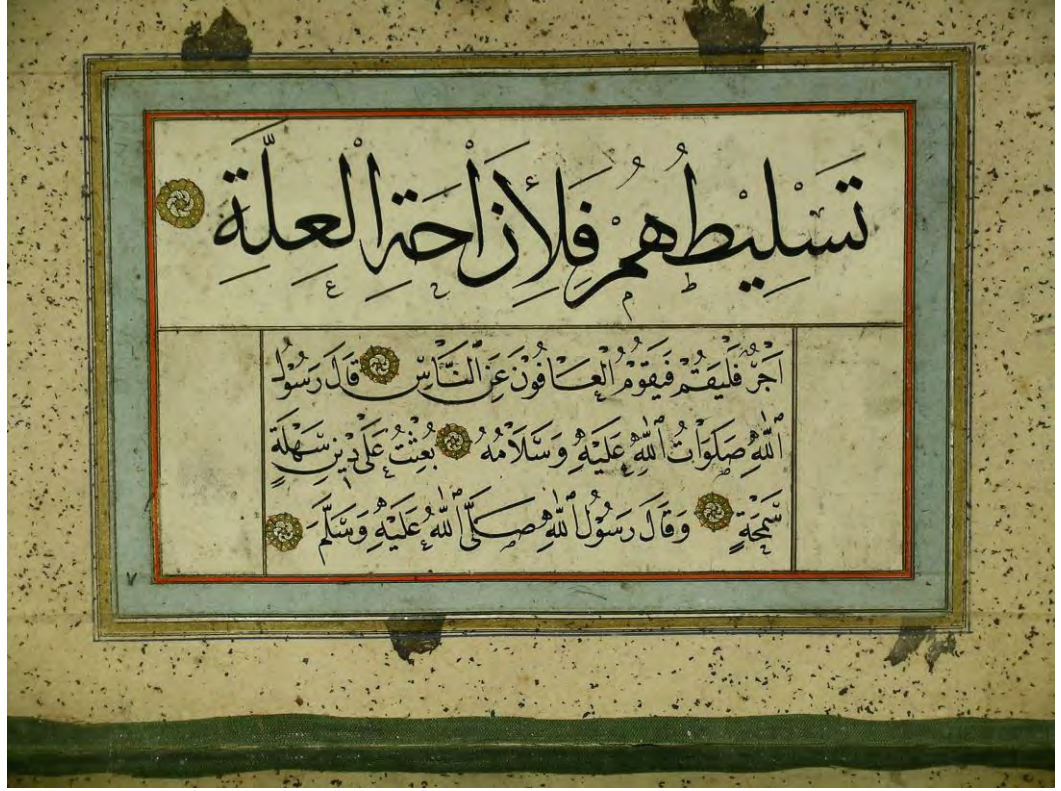 تَسْلِيطُهُمْ فَلِأِزَاحَةِ الْعِلَّةِ
اَجْرٌ فَلْيَقُمْ فَيَقُومُ الْعَافُونَ عَنِ النَّاسِ قَالَ رَسُولُ
اللّٰهِ صَلَوَاتُ اللّٰهِ عَلَيْهِ وَسَلَامُهُ بُعِثْتُ عَلَى دِينٍ سَهْلَةٍ
سَمْحَةٍ وَقَالَ رَسُولُ اللّٰهِ صَلَّى اللّٰهُ عَلَيْهِ وَسَلَّمَ
٧